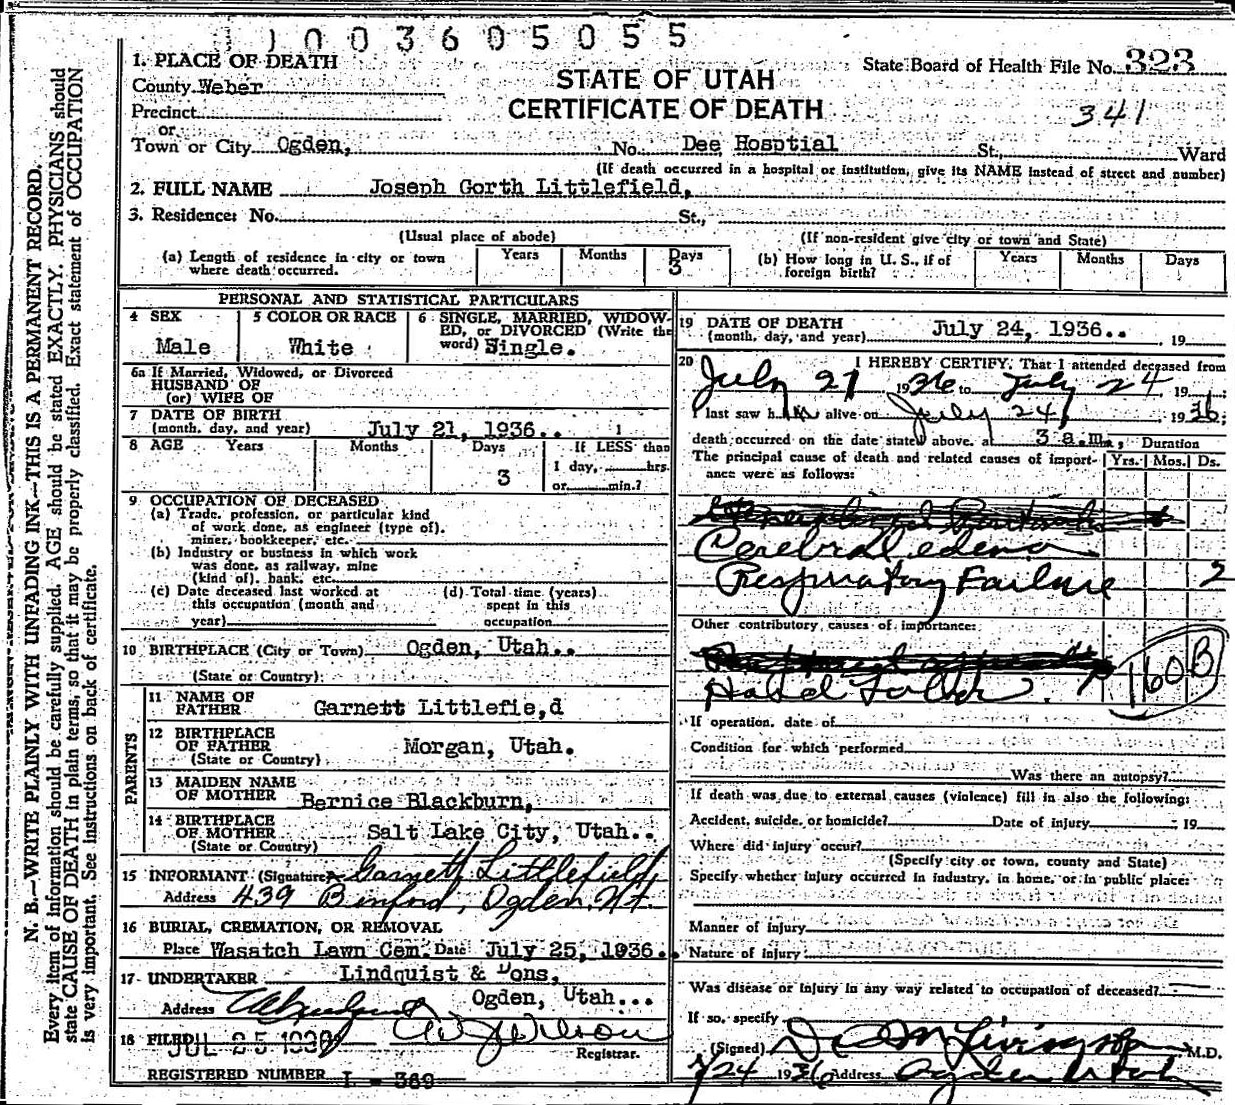 1003605055
1. PLACE OF DEATH
STATE OF UTAH
CERTIFICATE OF DEATH
State Board of Health File No. 323
341
County Weber
Precinct
or
Town or City Ogden, No. Dee Hosptial St., Ward
(If death occurred in a hospital or institution, give its NAME instead of street and number)
2. FULL NAME Joseph Gorth Littlefield,
3. Residence: No. St.,
(Usual place of abode) (If non-resident give city or town and State)
(a) Length of residence in city or town where death occurred. Years Months Days 3
(b) How long in U. S., if of foreign birth? Years Months Days
PERSONAL AND STATISTICAL PARTICULARS
4 SEX Male
5 COLOR OR RACE White
6 SINGLE, MARRIED, WIDOWED, or DIVORCED (Write the word) Single.
6a If Married, Widowed, or Divorced
HUSBAND OF
(or) WIFE OF
7 DATE OF BIRTH
(month, day, and year) July 21, 1936..
8 AGE Years Months Days 3 If LESS than
1 day, hrs.
or min.?
9 OCCUPATION OF DECEASED
(a) Trade, profession, or particular kind
of work done, as engineer (type of),
miner, bookkeeper, etc.
(b) Industry or business in which work
was done, as railway, mine
(kind of), bank, etc.
(c) Date deceased last worked at
this occupation (month and
year)
(d) Total time (years)
spent in this
occupation
10 BIRTHPLACE (City or Town) Ogden, Utah..
(State or Country)
PARENTS
11 NAME OF
FATHER Garnett Littlefie,d
12 BIRTHPLACE
OF FATHER Morgan, Utah.
(State or Country)
13 MAIDEN NAME
OF MOTHER Bernice Blackburn,
14 BIRTHPLACE
OF MOTHER Salt Lake City, Utah..
(State or Country)
15 INFORMANT (Signature) Garnett Littlefield,
Address 439 Binford, Ogden, Ut.
16 BURIAL, CREMATION, OR REMOVAL
Place Wasatch Lawn Cem. Date July 25, 1936..
17 UNDERTAKER Lindquist & Sons,
Address Ogden, Utah...
18 FILED JUL 25 1936
Registrar.
REGISTERED NUMBER I - 389
19 DATE OF DEATH
(month, day, and year) July 24, 1936.. , 19
20 I HEREBY CERTIFY, That I attended deceased from
July 21 1936 to July 24 19 ;
I last saw him alive on July 24, 1936;
death occurred on the date stated above, at 3 a.m., Duration
The principal cause of death and related causes of importance were as follows: Yrs. Mos. Ds.
Cerebral edema
Respiratory Failure 2
Other contributory causes of importance:
160B
If operation, date of
Condition for which performed
Was there an autopsy?
If death was due to external causes (violence) fill in also the following:
Accident, suicide, or homicide? Date of injury , 19
Where did injury occur?
(Specify city or town, county and State)
Specify whether injury occurred in industry, in home, or in public place:
Manner of injury
Nature of injury
Was disease or injury in any way related to occupation of deceased?
If so, specify
(Signed) M.D.
7/24 1936 Address Ogden Utah
N. B.—WRITE PLAINLY WITH UNFADING INK—THIS IS A PERMANENT RECORD.
Every item of information should be carefully supplied. AGE should be stated EXACTLY. PHYSICIANS should
state CAUSE OF DEATH in plain terms, so that it may be properly classified. Exact statement of OCCUPATION
is very important. See instructions on back of certificate.